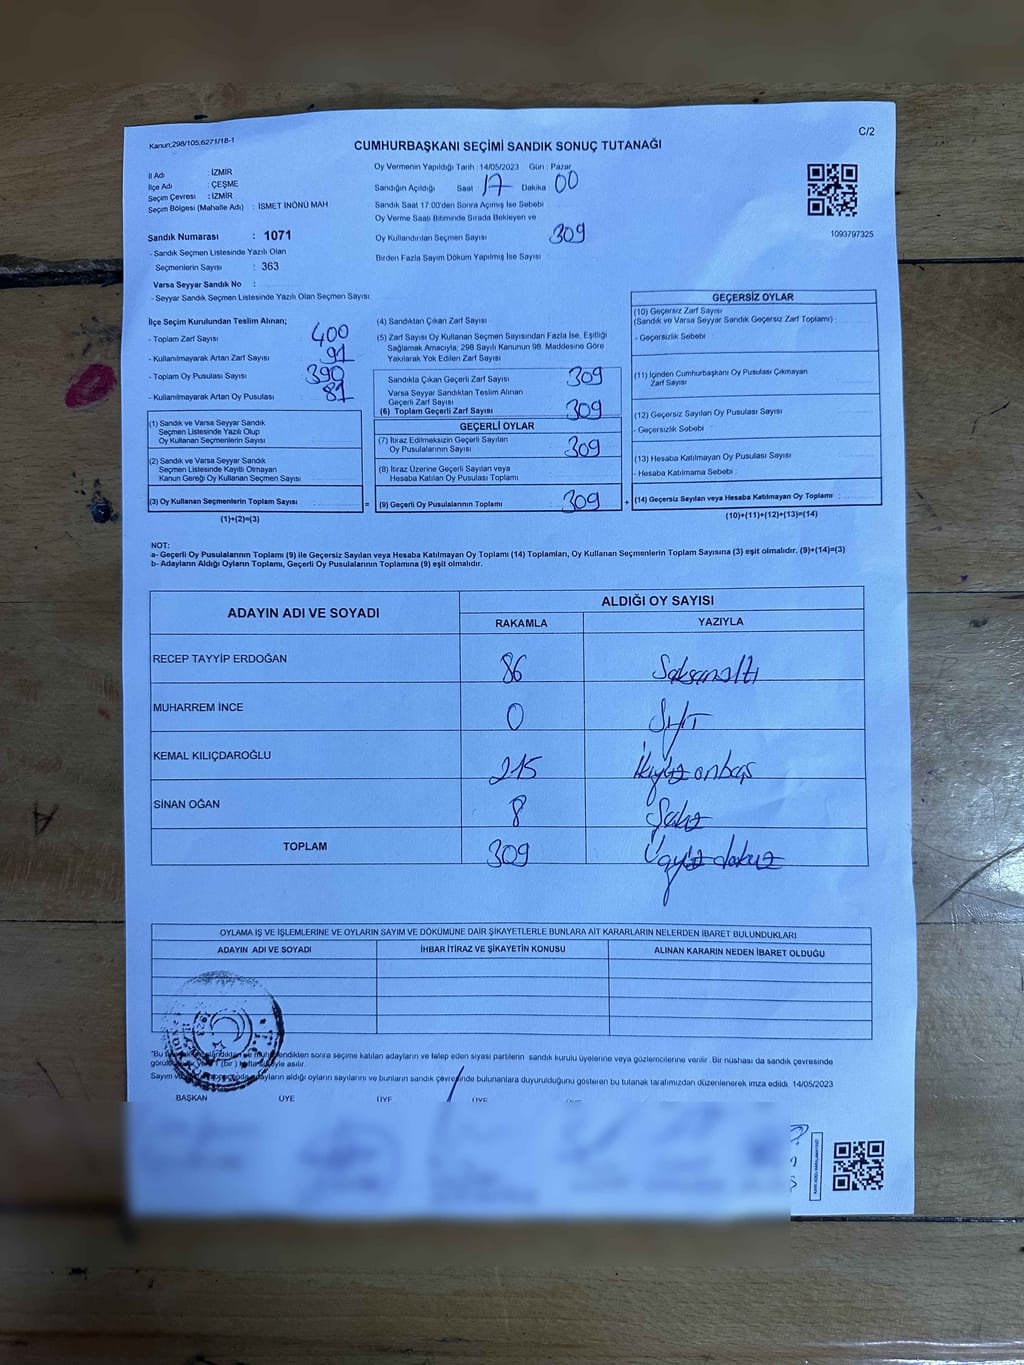 Kanun;298/105,6271/18-1
C/2
CUMHURBAŞKANI SEÇİMİ SANDIK SONUÇ TUTANAĞI
İl Adı : İZMİR
İlçe Adı : ÇEŞME
Seçim Çevresi : İZMİR
Seçim Bölgesi (Mahalle Adı) : İSMET İNÖNÜ MAH.
Sandık Numarası : 1071
- Sandık Seçmen Listesinde Yazılı Olan
Seçmenlerin Sayısı : 363
Varsa Seyyar Sandık No :
- Seyyar Sandık Seçmen Listesinde Yazılı Olan Seçmen Sayısı:
Oy Vermenin Yapıldığı Tarih : 14/05/2023 Gün : Pazar
Sandığın Açıldığı Saat 17 Dakika 00
Sandık Saat 17:00'den Sonra Açımış İse Sebebi
Oy Verme Saati Bitiminde Sırada Bekleyen ve
Oy Kullandırılan Seçmen Sayısı 309
Birden Fazla Sayım Döküm Yapılmış İse Sayısı :
1093797325
İlçe Seçim Kurulundan Teslim Alınan;
- Toplam Zarf Sayısı : 400
- Kullanılmayarak Artan Zarf Sayısı : 91
- Toplam Oy Pusulası Sayısı : 390
- Kullanılmayarak Artan Oy Pusulası : 81
(1) Sandık ve Varsa Seyyar Sandık
Seçmen Listesinde Yazılı Olup
Oy Kullanan Seçmenlerin Sayısı
(2) Sandık ve Varsa Seyyar Sandık
Seçmen Listesinde Kayıtlı Olmayan
Kanun Gereği Oy Kullanan Seçmen Sayısı
(3) Oy Kullanan Seçmenlerin Toplam Sayısı :
(1)+(2)=(3)
=
(4) Sandıktan Çıkan Zarf Sayısı
(5) Zarf Sayısı Oy Kullanan Seçmen Sayısından Fazla İse, Eşitliği
Sağlamak Amacıyla; 298 Sayılı Kanunun 98. Maddesine Göre
Yakılarak Yok Edilen Zarf Sayısı
Sandıkta Çıkan Geçerli Zarf Sayısı : 309
Varsa Seyyar Sandıktan Teslim Alınan
Geçerli Zarf Sayısı
(6) Toplam Geçerli Zarf Sayısı : 309
GEÇERLİ OYLAR
(7) İtiraz Edilmeksizin Geçerli Sayılan
Oy Pusulalarının Sayısı : 309
(8) İtiraz Üzerine Geçerli Sayılan veya
Hesaba Katılan Oy Pusulası Toplamı :
(9) Geçerli Oy Pusulalarının Toplamı : 309
+
GEÇERSİZ OYLAR
(10) Geçersiz Zarf Sayısı
(Sandık ve Varsa Seyyar Sandık Geçersiz Zarf Toplamı) :
- Geçersizlik Sebebi :
(11) İçinden Cumhurbaşkanı Oy Pusulası Çıkmayan
Zarf Sayısı :
(12) Geçersiz Sayılan Oy Pusulası Sayısı :
- Geçersizlik Sebebi :
(13) Hesaba Katılmayan Oy Pusulası Sayısı :
- Hesaba Katılmama Sebebi :
(14) Geçersiz Sayılan veya Hesaba Katılmayan Oy Toplamı :
(10)+(11)+(12)+(13)=(14)
NOT:
a- Geçerli Oy Pusulalarının Toplamı (9) ile Geçersiz Sayılan veya Hesaba Katılmayan Oy Toplamı (14) Toplamları, Oy Kullanan Seçmenlerin Toplam Sayısına (3) eşit olmalıdır. (9)+(14)=(3)
b- Adayların Aldığı Oyların Toplamı, Geçerli Oy Pusulalarının Toplamına (9) eşit olmalıdır.
ADAYIN ADI VE SOYADI ALDIĞI OY SAYISI
RAKAMLA YAZIYLA
RECEP TAYYİP ERDOĞAN 86 Seksenaltı
MUHARREM İNCE 0 Sıfır
KEMAL KILIÇDAROĞLU 215 İkiyüz onbeş
SİNAN OĞAN 8 Sekiz
TOPLAM 309 Üçyüz dokuz
OYLAMA İŞ VE İŞLEMLERİNE VE OYLARIN SAYIM VE DÖKÜMÜNE DAİR ŞİKAYETLERLE BUNLARA AİT KARARLARIN NELERDEN İBARET BULUNDUKLARI
ADAYIN ADI VE SOYADI İHBAR İTİRAZ VE ŞİKAYETİN KONUSU ALINAN KARARIN NEDEN İBARET OLDUĞU
"Bu sonra seçime katılan adayların ve talep eden siyasi partilerin sandık kurulu üyelerine veya gözlemcilerine verilir. Bir nüshası da sandık çevresinde
(bir) hafta süreyle asılır.
Sayım adayların aldığı oyların sayılarını ve bunların sandık çevresinde bulunanlara duyurulduğunu gösteren bu tutanak tarafımızdan düzenlenerek imza edildi. 14/05/2023
BAŞKAN ÜYE ÜYE ÜYE